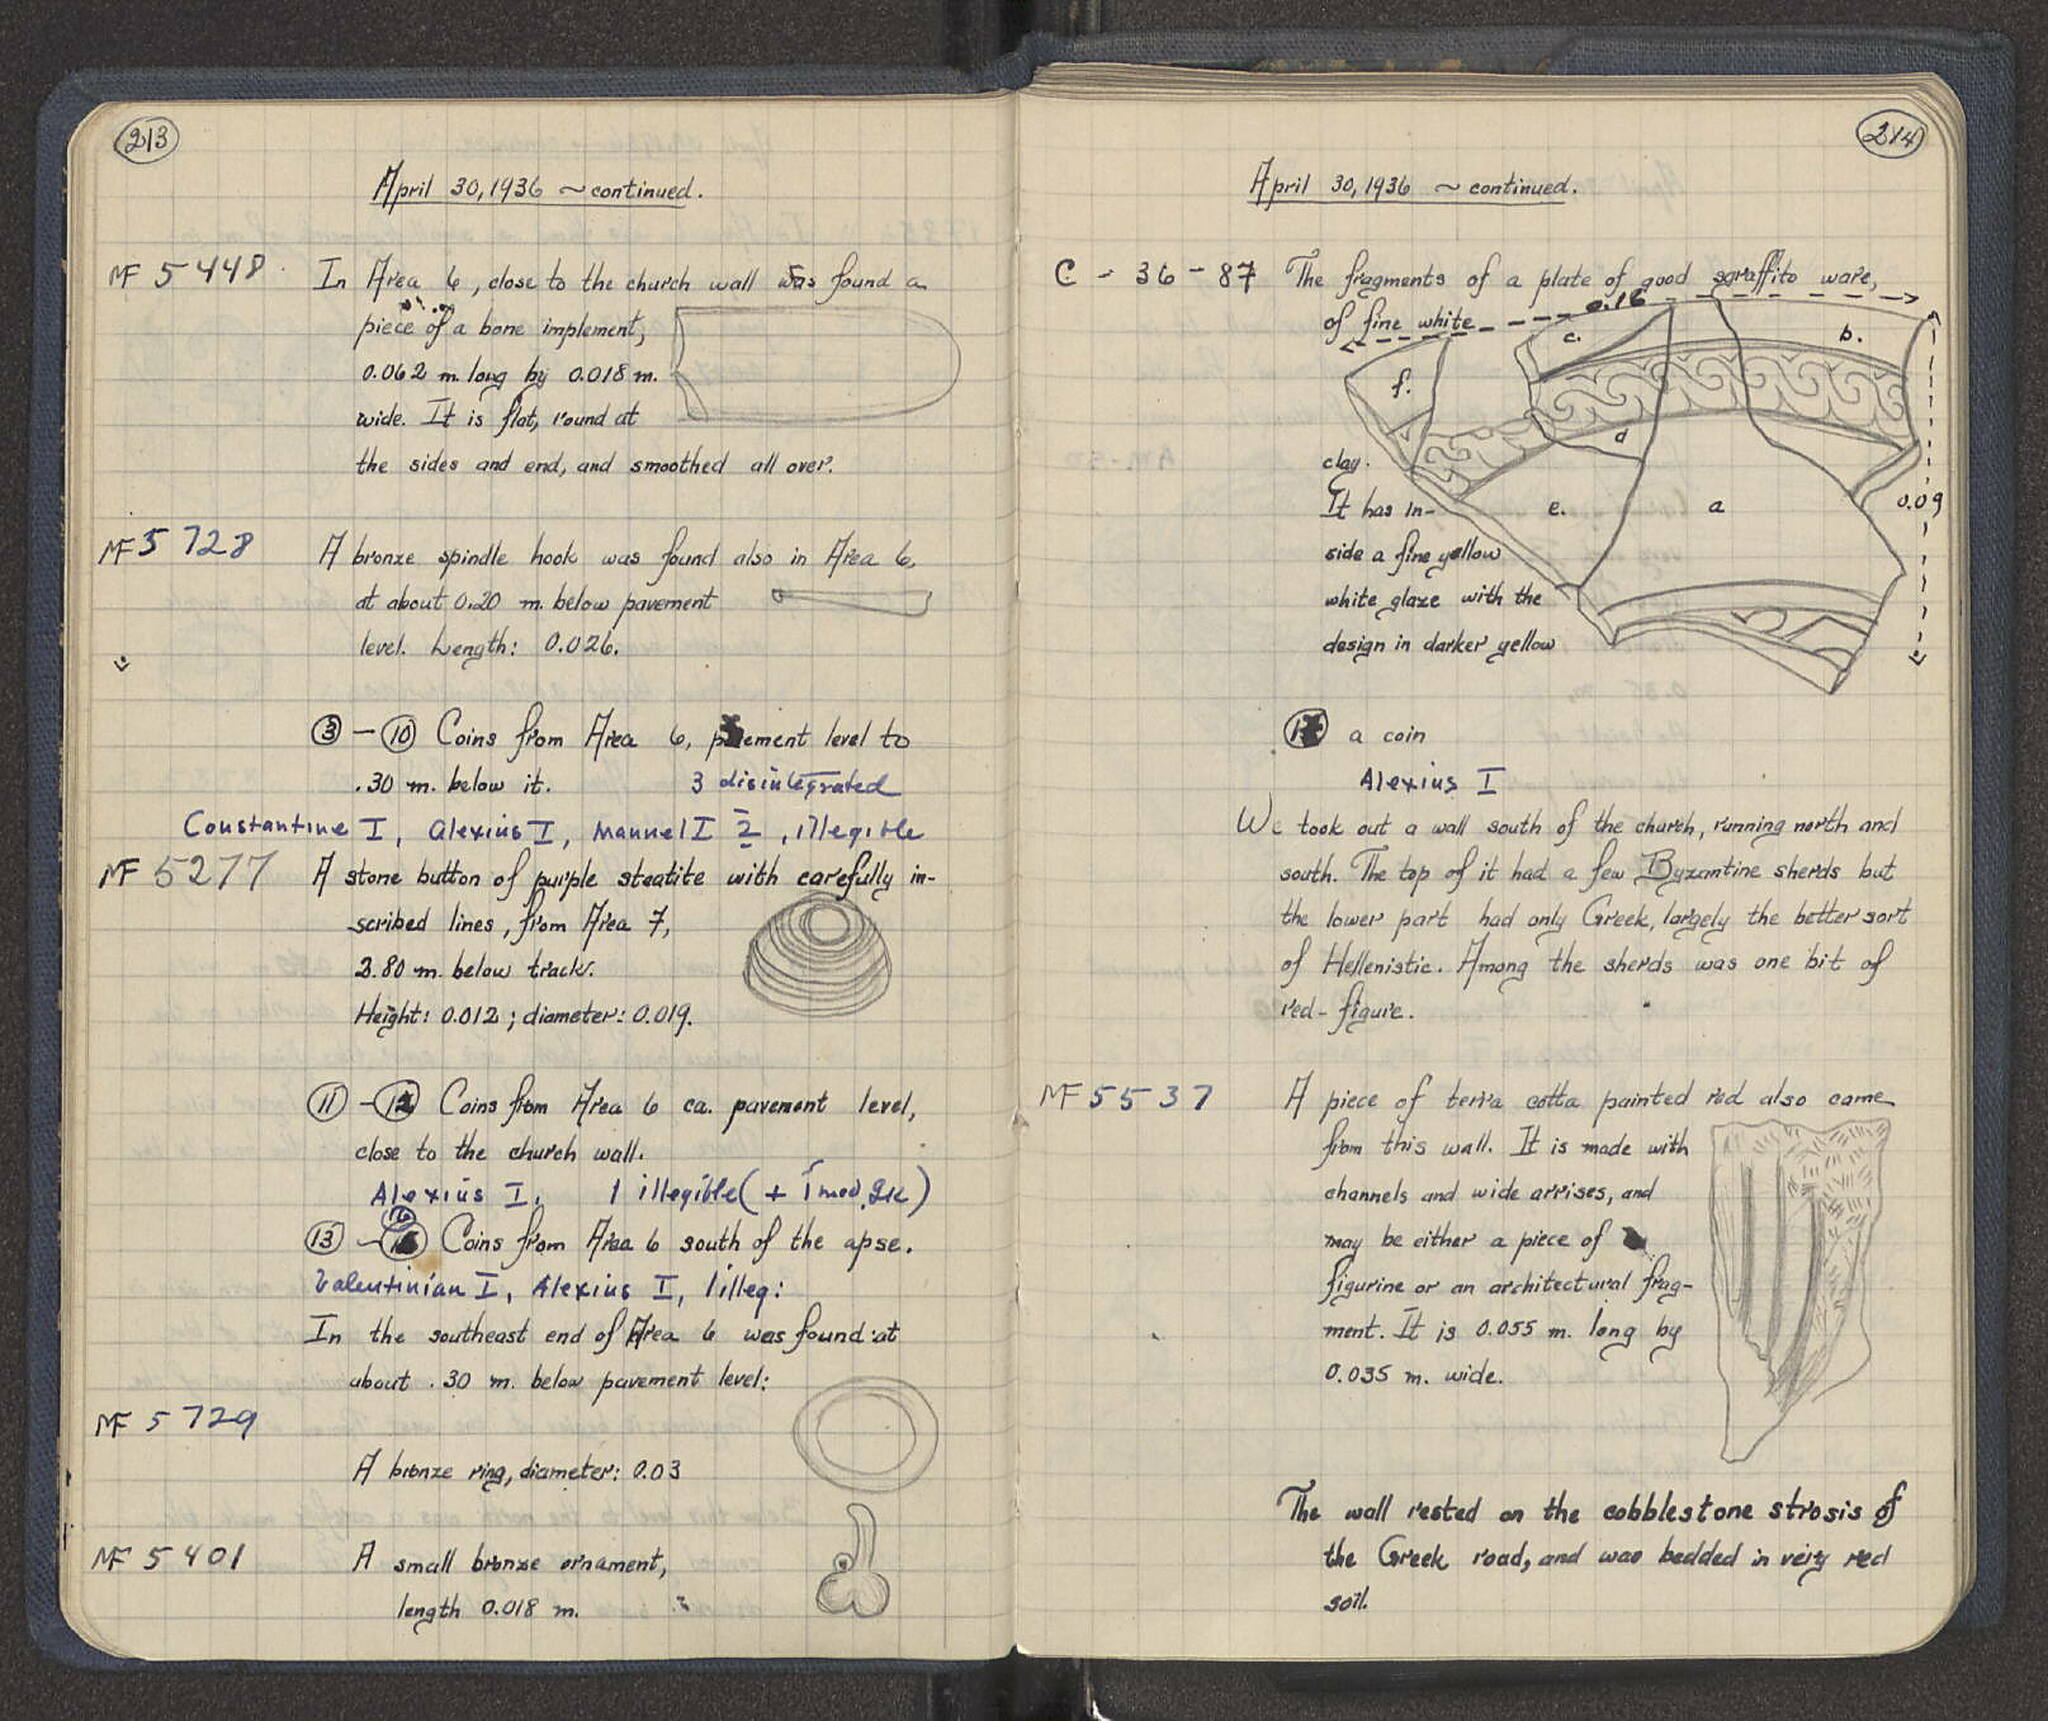 213
April 30, 1936 ~ continued.
MF 5448
In Area 6, close to the church wall was found a
piece of a bone implement,
0.062 m. long by 0.018 m.
wide. It is flat, round at
the sides and end, and smoothed all over.
MF 5728
A bronze spindle hook was found also in Area 6,
at about 0.20 m. below pavement
level. Length: 0.026.
③ – ⑩ Coins from Area 6, pavement level to
.30 m. below it. 3 disintegrated
Constantine I, Alexius I, Manuel I 2, illegible
MF 5277
A stone button of purple steatite with carefully in-
scribed lines, from Area 7,
3.80 m. below track.
Height: 0.012; diameter: 0.019.
⑪ – ⑫ Coins from Area 6 ca. pavement level,
close to the church wall.
Alexius I, 1 illegible (+ 1 mod. gk)
⑬ – Coins from Area 6 south of the apse.
Valentinian I, Alexius I, 1 illeg:
In the southeast end of Area 6 was found at
about .30 m. below pavement level:
MF 5729
A bronze ring, diameter: 0.03
MF 5401
A small bronze ornament,
length 0.018 m.
214
April 30, 1936 ~ continued.
C - 36 - 87 The fragments of a plate of good sgraffito ware,
of fine white
0.16
c.
b.
f.
d
clay.
It has in-
e.
a
0.09
side a fine yellow
white glaze with the
design in darker yellow
a coin
Alexius I
We took out a wall south of the church, running north and
south. The top of it had a few Byzantine sherds but
the lower part had only Greek, largely the better sort
of Hellenistic. Among the sherds was one bit of
red-figure.
MF 5537
A piece of terra cotta painted red also came
from this wall. It is made with
channels and wide arrises, and
may be either a piece of
figurine or an architectural frag-
ment. It is 0.055 m. long by
0.035 m. wide.
The wall rested on the cobblestone strosis of
the Greek road, and was bedded in very red
soil.